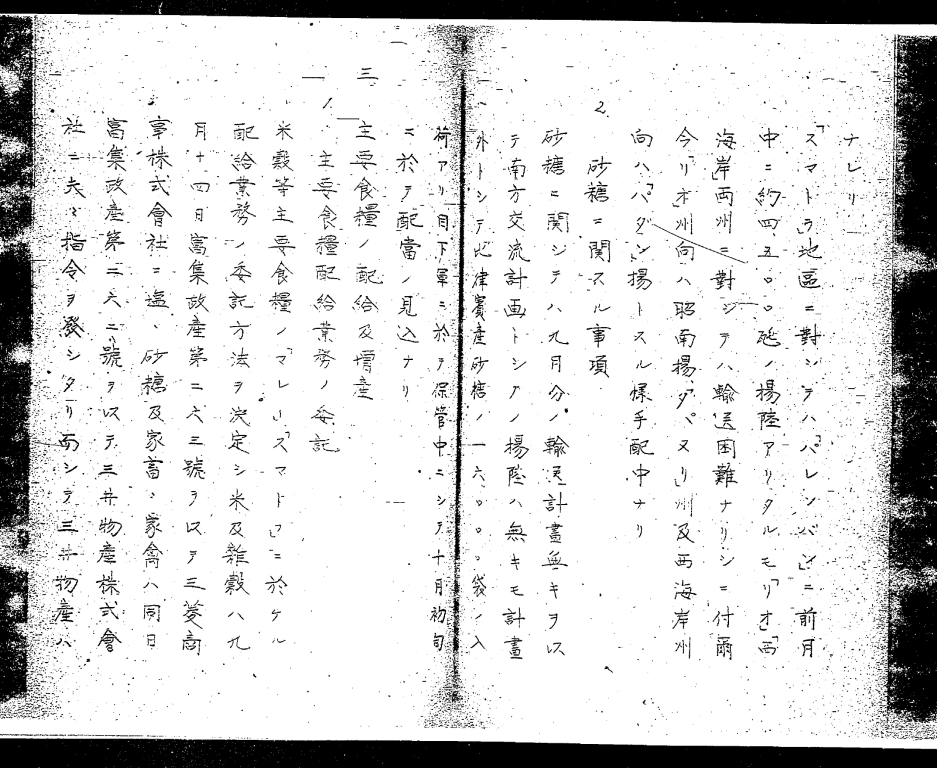 ナレリ
「スマトラ」地區ニ對シテハ「パレンバン」ニ前月
中ニ約四五〇〇瓲ノ揚陸アリタルモ「リオ」「西
海岸両州ニ對シテハ輸送困難ナリシニ付爾
今「リオ」州向ハ昭南揚ゲ「タパヌリ」州及西海岸州
向ハ「パダン」揚トスル様手配中ナリ
2. 砂糖ニ関スル事項
砂糖ニ関シテハ九月分ノ輸送計畫無キヲ以
テ南方交流計画トシテノ揚陸ハ無キモ計畫
外トシテ比律賓産砂糖ノ一六〇〇〇袋ノ入
荷アリ目下軍ニ於テ保管中ニシテ十月初旬
ニ於テ配當ノ見込ナリ
三 主要食糧ノ配給及増産
1. 主要食糧配給業務ノ委託
米穀等主要食糧ノ「マレー」「スマトラ」ニ於ケル
配給業務ノ委託方法ヲ決定シ米及雑穀ハ九
月十四日富集政産第二六三號ヲ以テ三菱商
事株式會社ニ塩、砂糖及家畜、家禽ハ同日
富集政産第二六二號ヲ以テ三井物産株式會
社ニ夫々指令ヲ發シタリ而シテ三井物産ハ